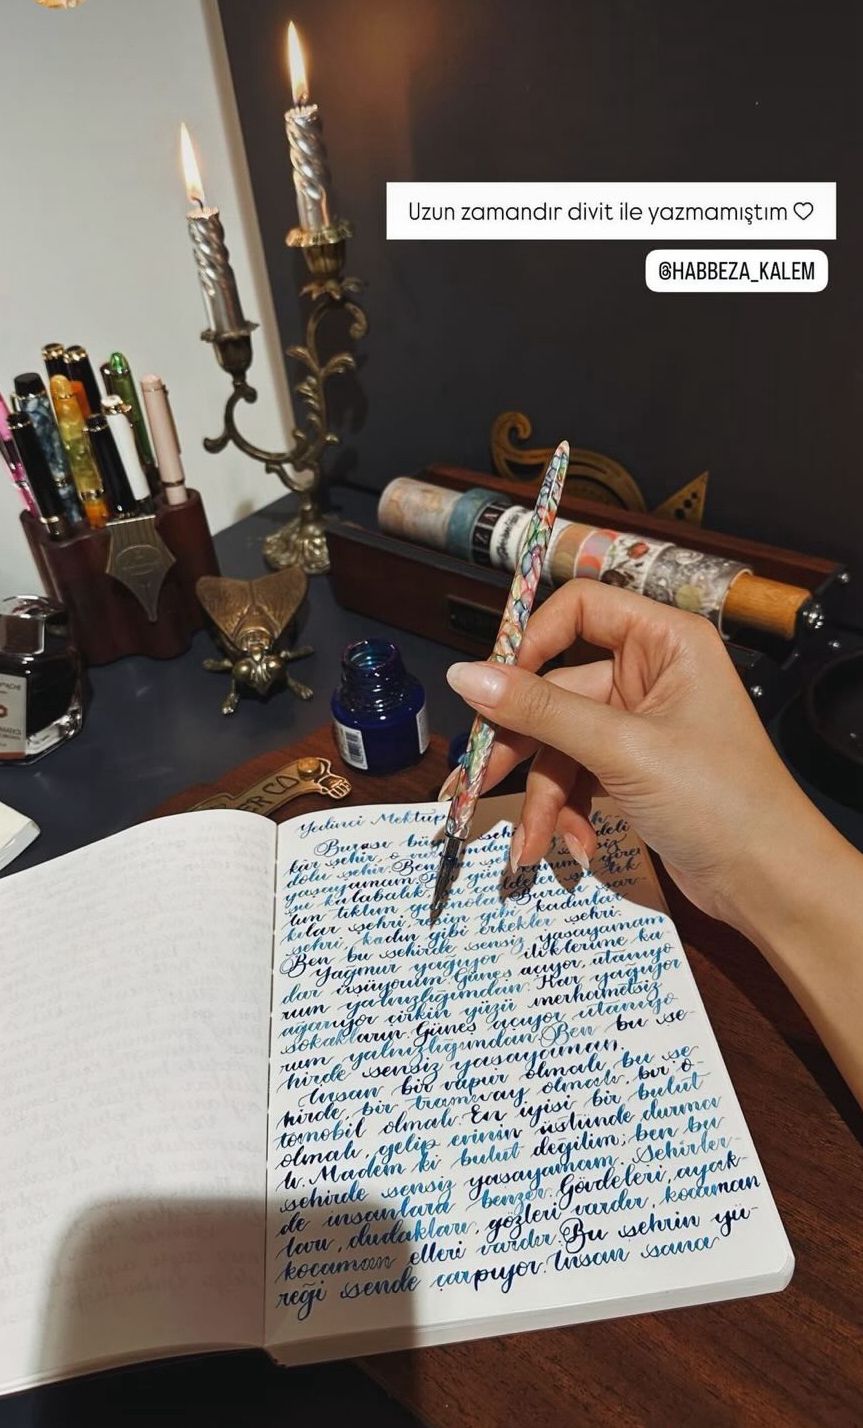 Uzun zamandır divit ile yazmamıştım ♡
@HABBEZA_KALEM
ER CO
Yedinci Mektup
Burası
kâr şehir, o
dolu şehir. Ben
yaşayamam. Bu
kalabalık, bu caddeler
tün tiklim Burası sar-
kılar şehri, resim gibi kadınlar
şehri, kadın gibi erkekler şehri.
Ben bu şehirde sensiz yaşayamam
Yağmur yağıyor iliklerime ka-
dar üşüyorum. Güneş açıyor, utanıyo
rum yalnızlığımdan. Kar yağıyor
ağarıyor çirkin yüzü merhametsiz
sokakların. Güneş açıyor utanıyo
rum yalnızlığımdan. Ben bu şe-
hirde sensiz yaşayamam.
İnsan bir vapur olmalı bu şe
hirde, bir tramvay olmalı, bir o-
tomobil olmalı. En iyisi bir bulut
olmalı, gelip evinin üstünde durma
lı. Madem ki bulut değilim; ben bu
şehirde sensiz yaşayamam. Şehirler-
de insanlara benzer. Gövdeleri, ayak-
ları, dudakları, gözleri vardır, kocaman
kocaman elleri vardır. Bu şehrin yü-
reği sende çarpıyor. İnsan sana